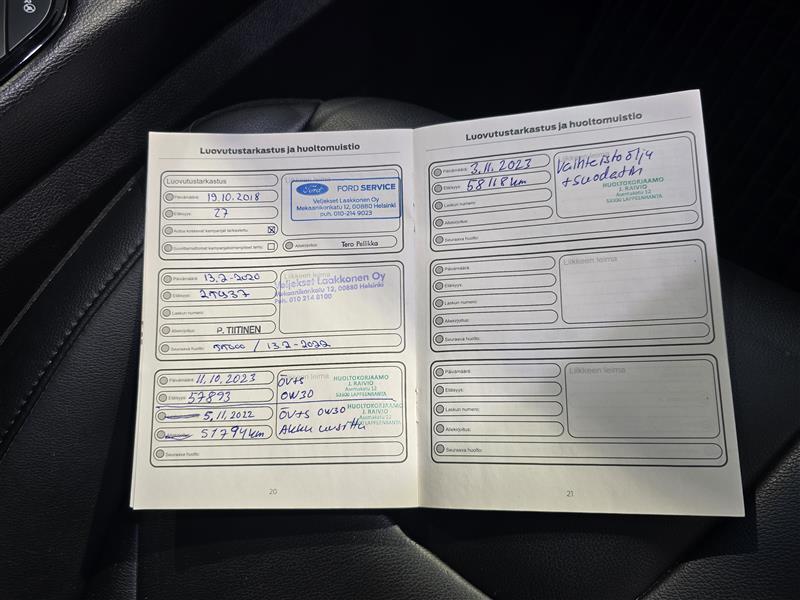 Luovutustarkastus ja huoltomuistio
Luovutustarkastus
Liikkeen leima
Päivämäärä: 19.10.2018
Etäisyys: 27
Ford FORD SERVICE
Veljekset Laakkonen Oy
Mekaanikonkatu 12, 00880 Helsinki
puh. 010-214 9023
Allekirjoitus: Tero Pellikka
Päivämäärä: 13.2-2020
Liikkeen leima
Veljekset Laakkonen Oy
Mekaanikonkatu 12, 00880 Helsinki
Puh. 010 214 8100
Etäisyys:
Laskun numero:
Allekirjoitus: P. TIITINEN
Seuraava huolto: / 13.2-2022
Päivämäärä: 11.10.2023
Etäisyys: 57893
ÖV+S
OW30
HUOLTOKORJAAMO
J. RAIVIO
Asemakatu 12
53500 LAPPEENRANTA
5.11.2022
51794 km
ÖV+S OW30
Akku uusittu
HUOLTOKORJAAMO
J. RAIVIO
Asemakatu 12
LAPPEENRANTA
Seuraava huolto:
20
Luovutustarkastus ja huoltomuistio
Päivämäärä: 3.11.2023
Etäisyys: 58118 km
Laskun numero:
Allekirjoitus:
Seuraava huolto:
Vaihteistoölju
+ suodatin
HUOLTOKORJAAMO
J. RAIVIO
Asemakatu 12
53500 LAPPEENRANTA
Päivämäärä:
Etäisyys:
Laskun numero:
Allekirjoitus:
Seuraava huolto:
Liikkeen leima
Päivämäärä:
Etäisyys:
Laskun numero:
Allekirjoitus:
Seuraava huolto:
Liikkeen leima
21